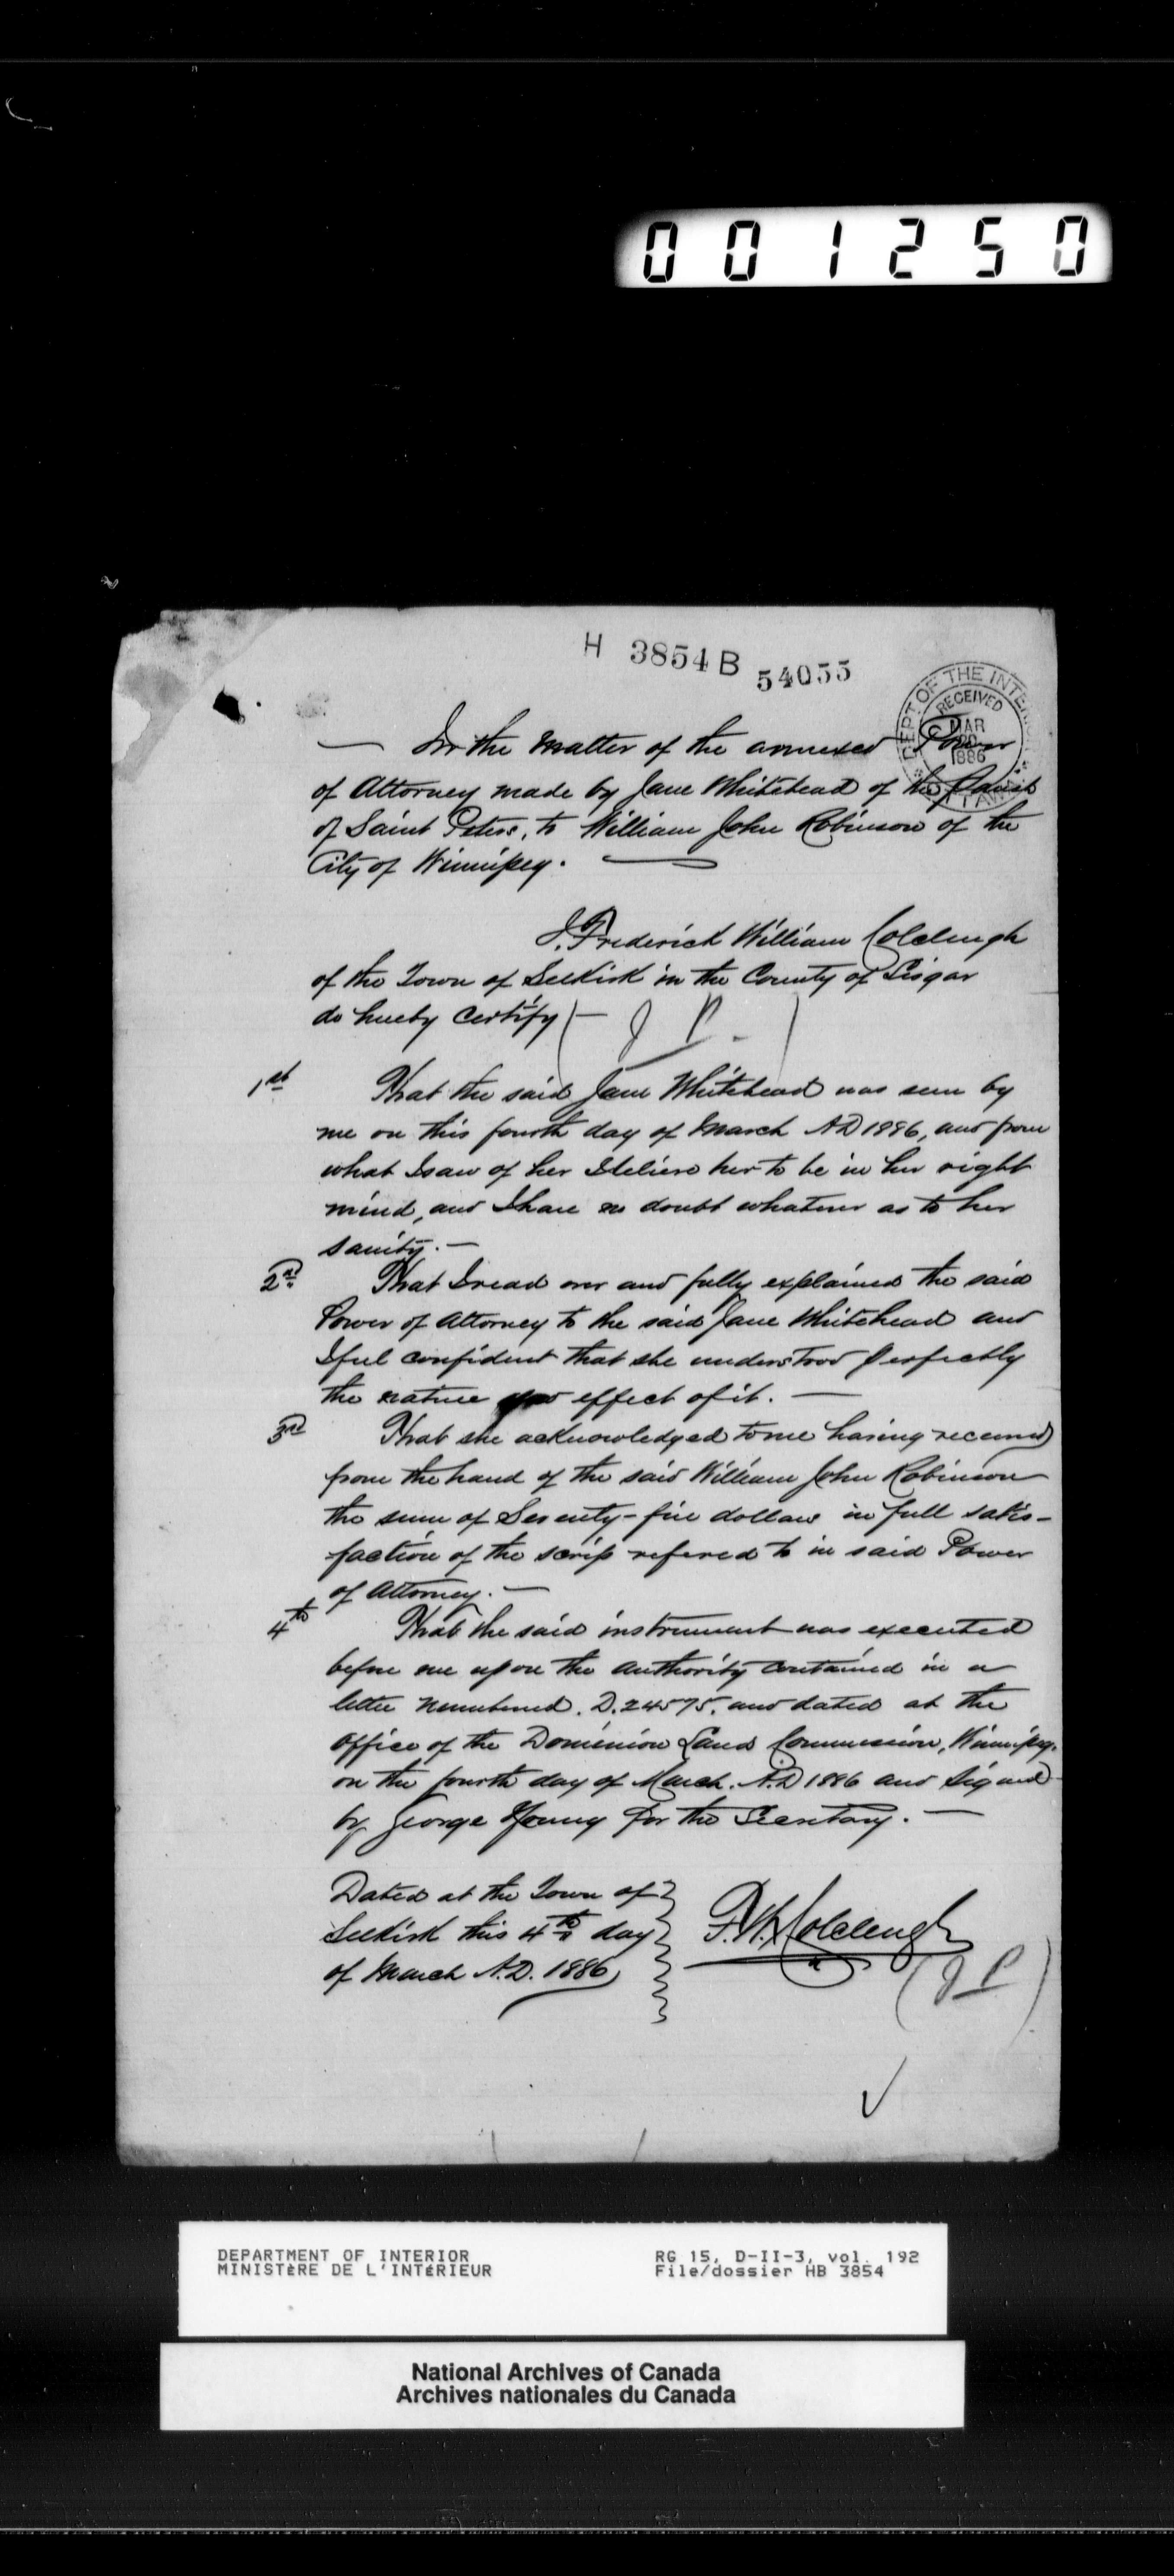 001250
H 3854 B 54055
DEPT. OF THE INTERIOR
RECEIVED
MAR
20
1886
OTTAWA
— In the Matter of the annexed Power
of Attorney made by Jane Whitehead of the Parish
of Saint Peters, to William John Robinson of the
City of Winnipeg. —
I, Frederick William Colcleugh
of the Town of Selkirk in the County of Lisgar
do hereby Certify (— J P. )
1st That the said Jane Whitehead was seen by
me on this fourth day of March AD 1886, and from
what I saw of her I believe her to be in her right
mind, and I have no doubt whatever as to her
sanity. —
2nd That I read over and fully explained the said
Power of Attorney to the said Jane Whitehead and
I feel confident that she understood perfectly
the nature and effect of it. —
3rd That she acknowledged to me having received
from the hand of the said William John Robinson
the sum of Seventy-five dollars in full satis-
faction of the scrip refered to in said Power
of Attorney. —
4th That the said instrument was executed
before me upon the authority contained in a
letter numbered. D. 24575. and dated at the
Office of the Dominion Lands Commission, Winnipeg.
on the fourth day of March. A.D 1886 and signed
by George Young for the Secretary. —
Dated at the Town of
Selkirk this 4th day
of March A.D. 1886
F.W. Colcleugh
(J P)
DEPARTMENT OF INTERIOR
MINISTÈRE DE L'INTÉRIEUR
RG 15, D-II-3, vol. 192
File/dossier HB 3854
National Archives of Canada
Archives nationales du Canada